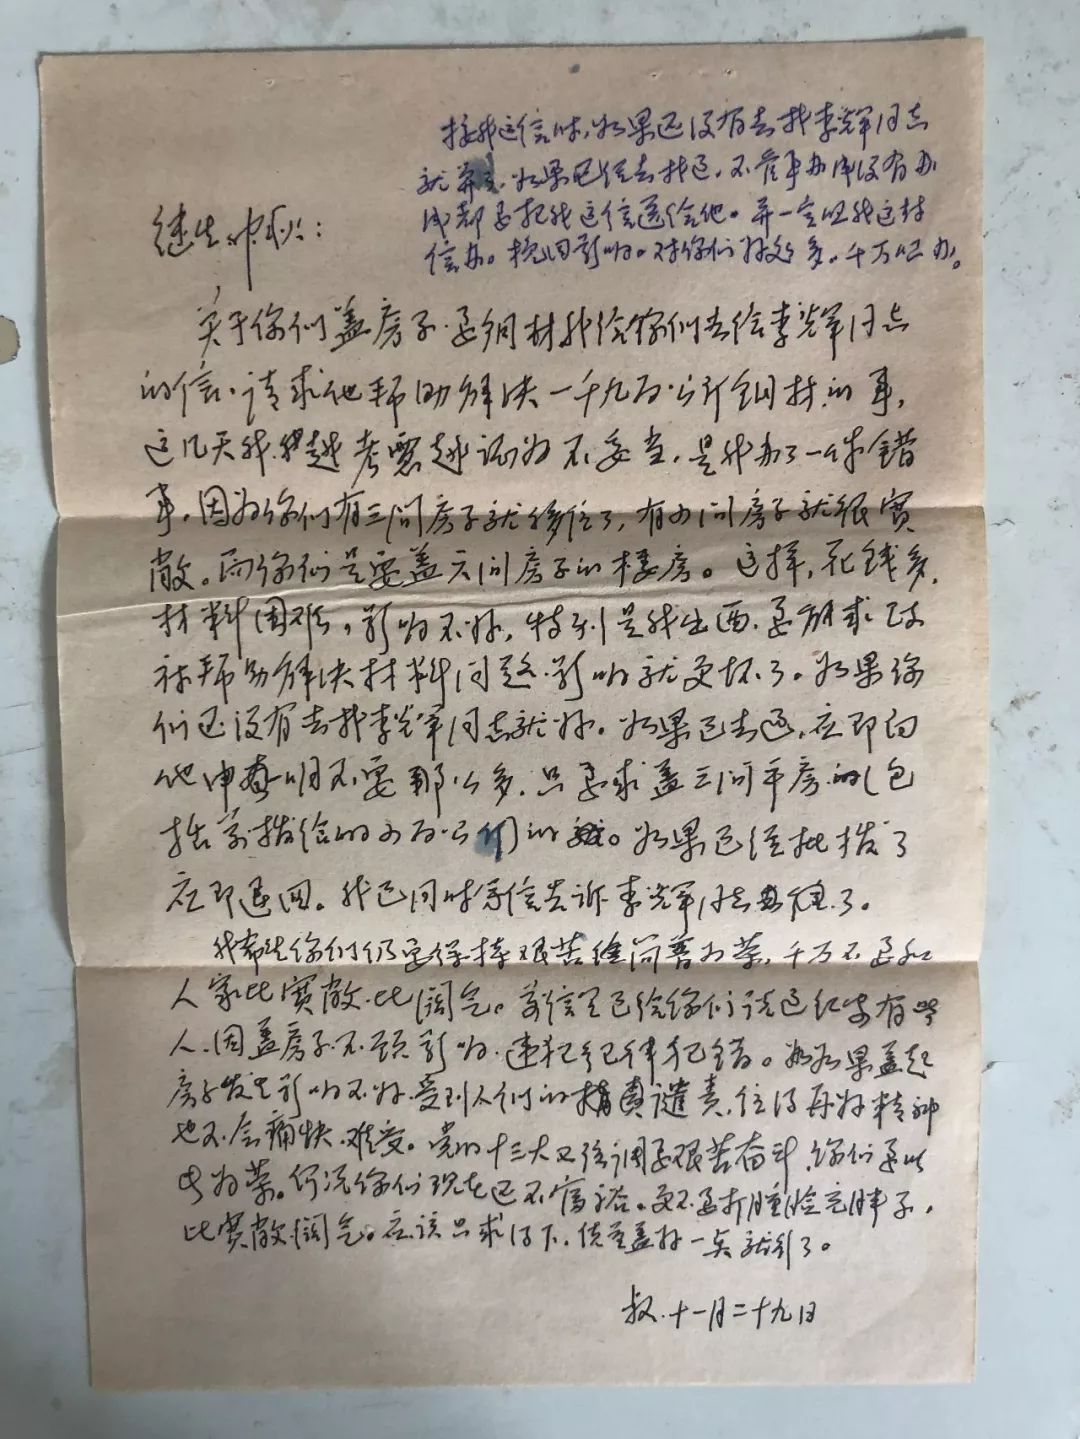 接我这信时，如果还没有去找李光军同志
就算了。如果已经去找过，不管事办成没有办
成都要把我这信送给他。并一定照我这封
信办。挽回影响。对你们好处多。千万照办。
继生
关于你们盖房子要钢材我给你们去给李光军同志
的信，请求他帮助解决一千九百公斤钢材的事，
这几天我越考虑越认为不妥当，是我办了一件错
事，因为你们有三间房子就够住了，有四间房子就很宽
敞。而你们是要盖六间房子的楼房。这样，花钱多，
材料困难，影响不好，特别是我出面要求政
府帮助解决材料问题影响就更坏了。如果你
们还没有去找李光军同志就好。如果已去过，应即向
他申明不要那么多，只要求盖三间平房的（包
括前拨给的四百公斤）。如果已经批拨了
应即退回。我已同时写信告诉李光军同志了。
我希望你们仍要保持艰苦俭简为荣，千万不要和
人家比宽敞比阔气。前信里已给你们说过纪安有些
人，因盖房子不顾影响，违犯纪律犯错。如果盖起
房子发生影响不好受到人们的谴责，住得再好精神
也不会痛快，难受。党的十三大又强调要艰苦奋斗，你们要以
此为荣。何况你们现在还不富裕。更不要打肿脸充胖子，
比宽敞阔气。应该只求住下，质量盖好一点就行了。
叔 十一月二十九日